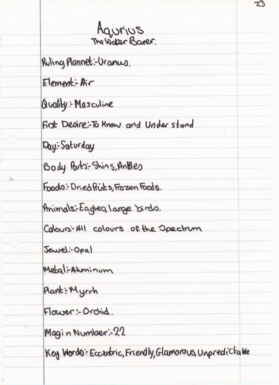 23
Aqurius
The Water Barer.
Ruling Plannet:-Uranus.
Element:-Air
Quality:-Masculine
Gat Desire:-To Know and Understand
Day:-Saturday
Body Parts:-Shins, Ankles
Foods:-Dried fruits, Frozen Foods.
Animals:-Eagles, Large birds.
Colours:-All colours of the Spectrum
Jewel:-Opal
Metal:-Aluminum
Plant:-Myrrh
Flower:-Orchid.
Magin Number:-22
Key Words:-Eccentric, Friendly, Glamorous, Unpredictable